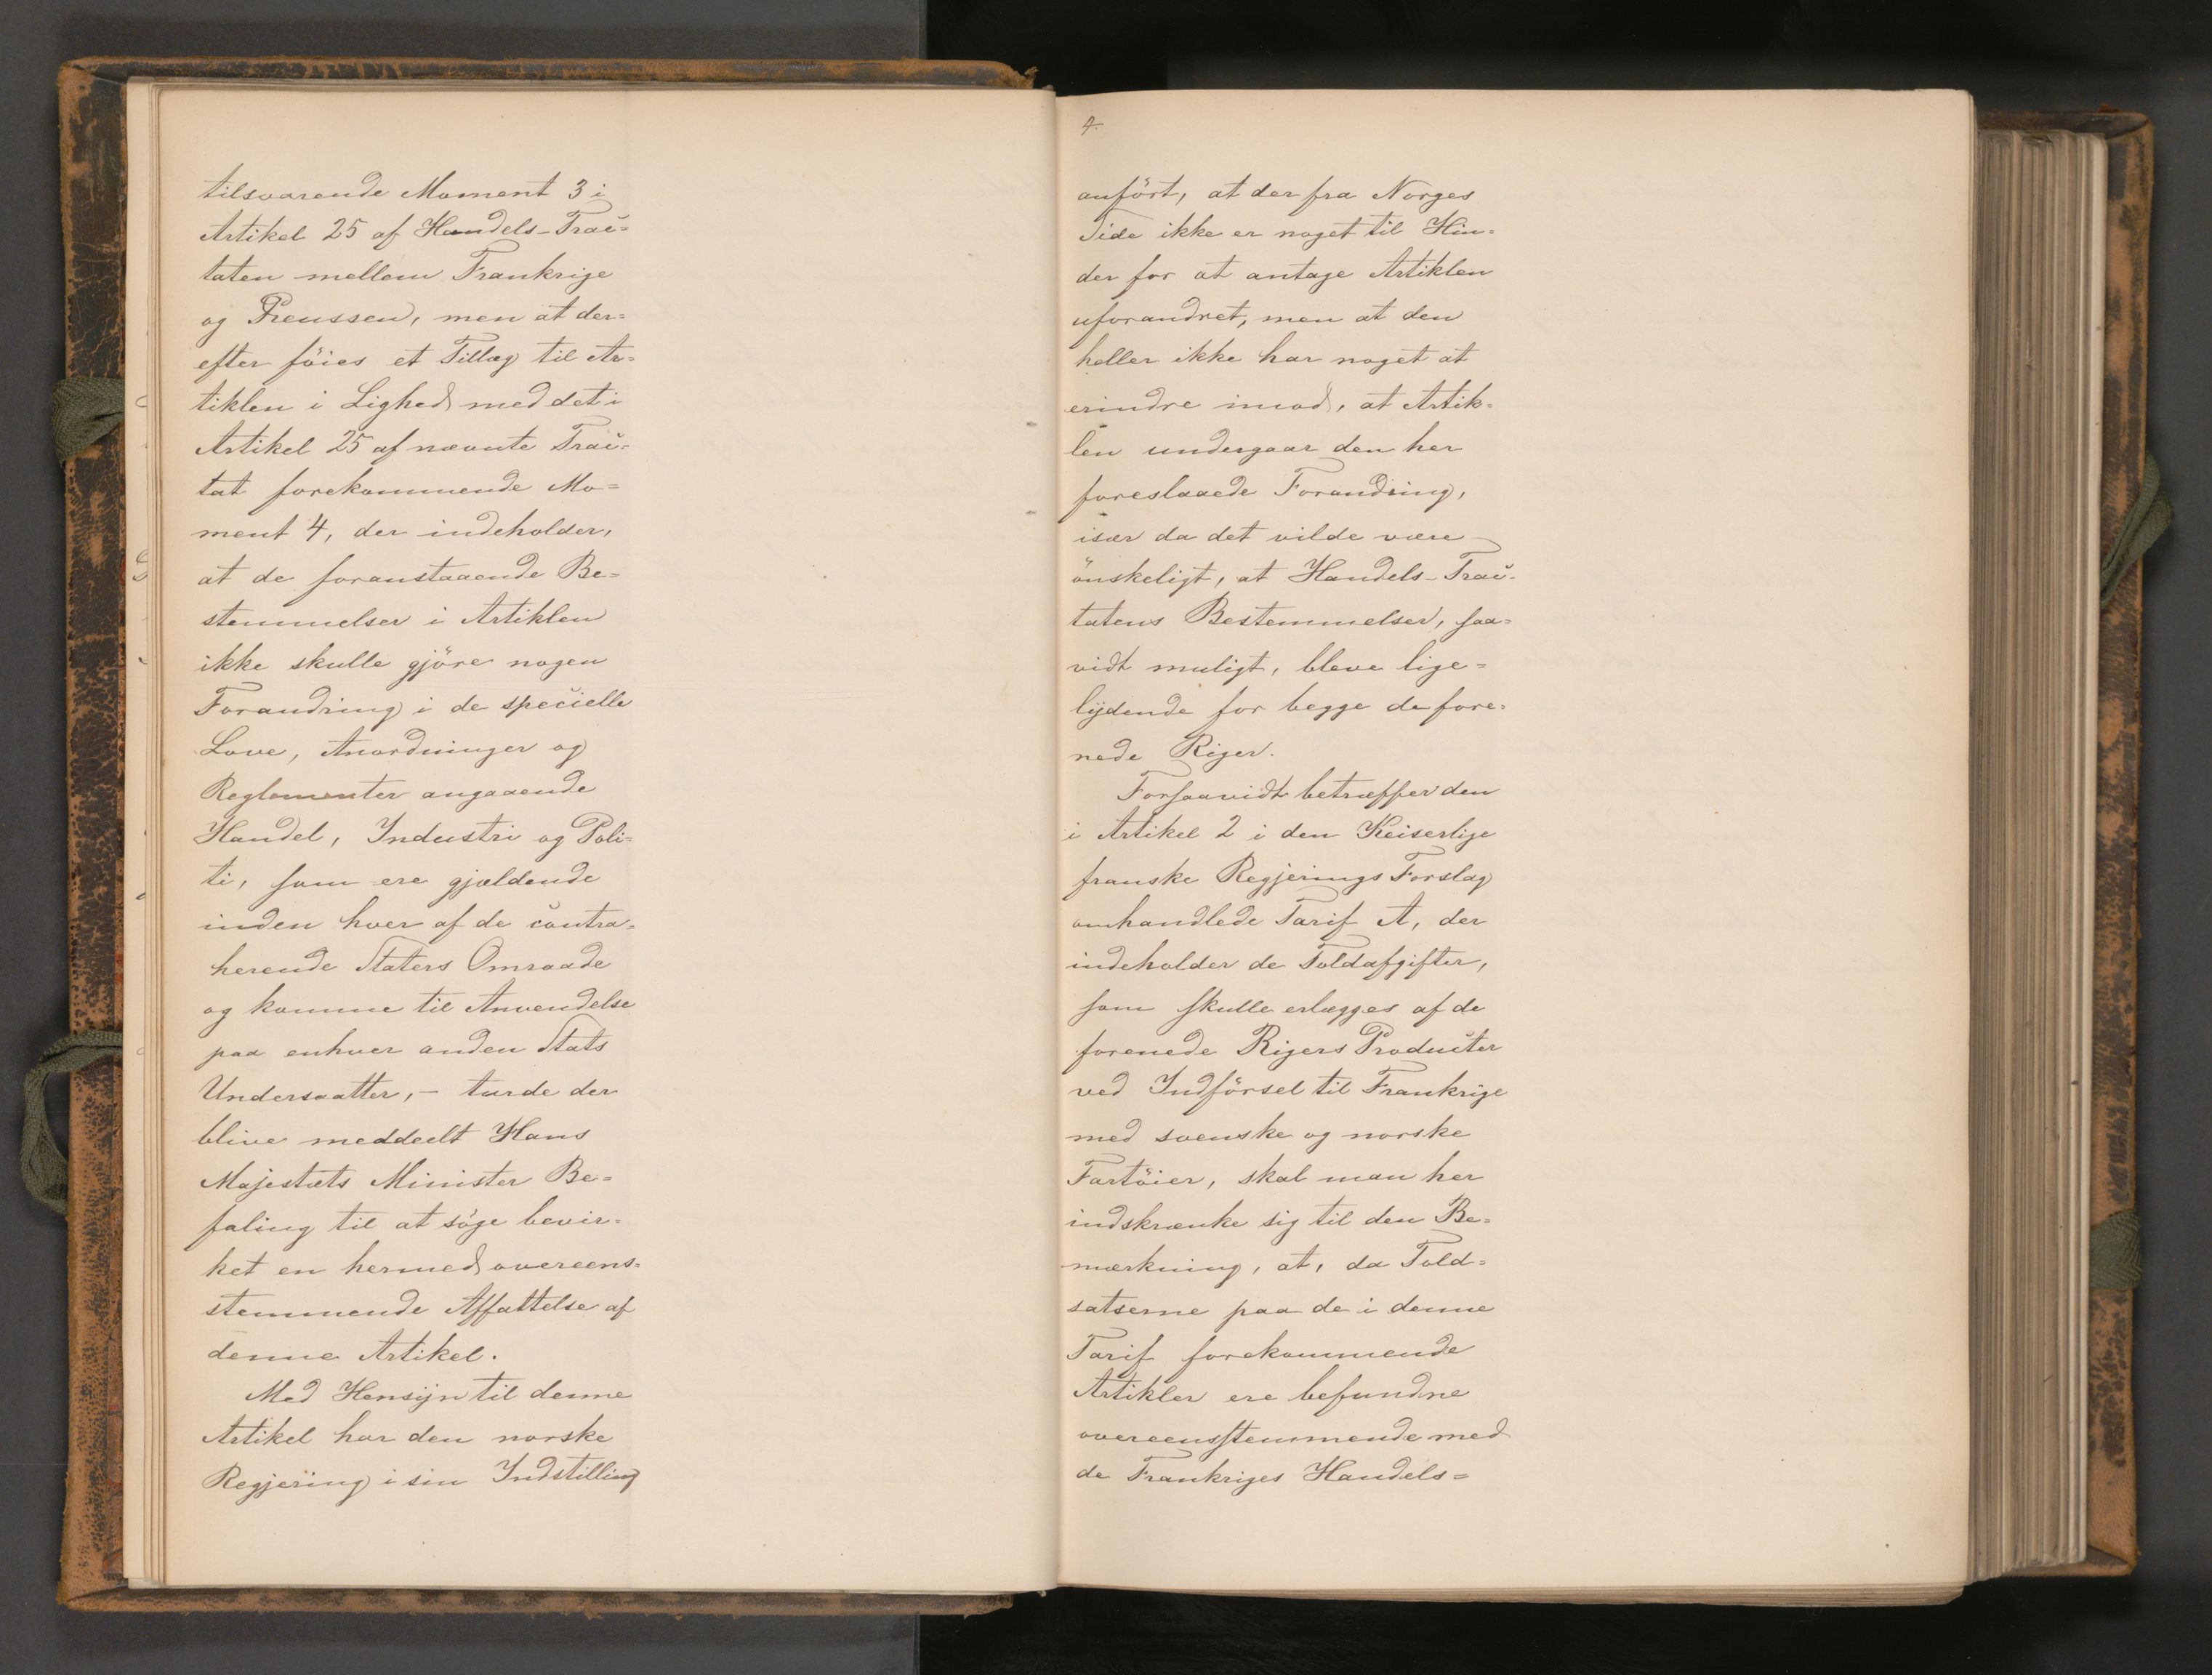 tilsvarende Moment 3 i
Artikel 25 af Handels-Trac-
taten mellem Frankrige
og Preussen, men at der-
efter föies et Tillæg til Ar-
tiklen i Lighed med det i
Artikel 25 af nævnte Trac-
tat forekommende Mo-
ment 4, der indeholder,
at de foranstaaende Be-
stemmelser i Artiklen
ikke skulle gjöre nogen
Forandring i de specielle
Love, Anordninger og
Reglementer angaaende
Handel, Industri og Poli-
ti, som ere gjældende
inden hver af de contra-
herende Staters Omraade
og komme til Anvendelse
paa enhver anden Stats
Undersaatter, - turde der
blive meddeelt Hans
Majestæts Minister Be-
faling til at söge bevir-
ket en hermed overeens-
stemmende Affattelse af
denne Artikel.
Med Hensyn til denne
Artikel har den norske
Regjering i sin Indstilling
4.
anfört, at der fra Norges
Side ikke er noget til Hin-
der for at antage Artiklen
uforandret, men at den
heller ikke har noget at
erindre imod, at Artik-
len undergaar den her
foreslaaede Forandring,
især da det vilde være
önskeligt, at Handels-Trac-
tatens Bestemmelser, saa-
vidt muligt, bleve lige-
lydende for begge de fore-
nede Riger.
Forsaavidt betræffer den
i Artikel 2 i den Keiserlige
franske Regjerings Forslag
omhandlede Tarif A, der
indeholder de Toldafgifter,
som skulle erlægges af de
forenede Rigers Producter
ved Indförsel til Frankrige
med svenske og norske
Fartöier, skal man her
indskrænke sig til den Be-
mærkning, at, da Told-
satserne paa de i denne
Tarif forekommende
Artikler ere befundne
overeensstemmende med
de Frankriges Handels-